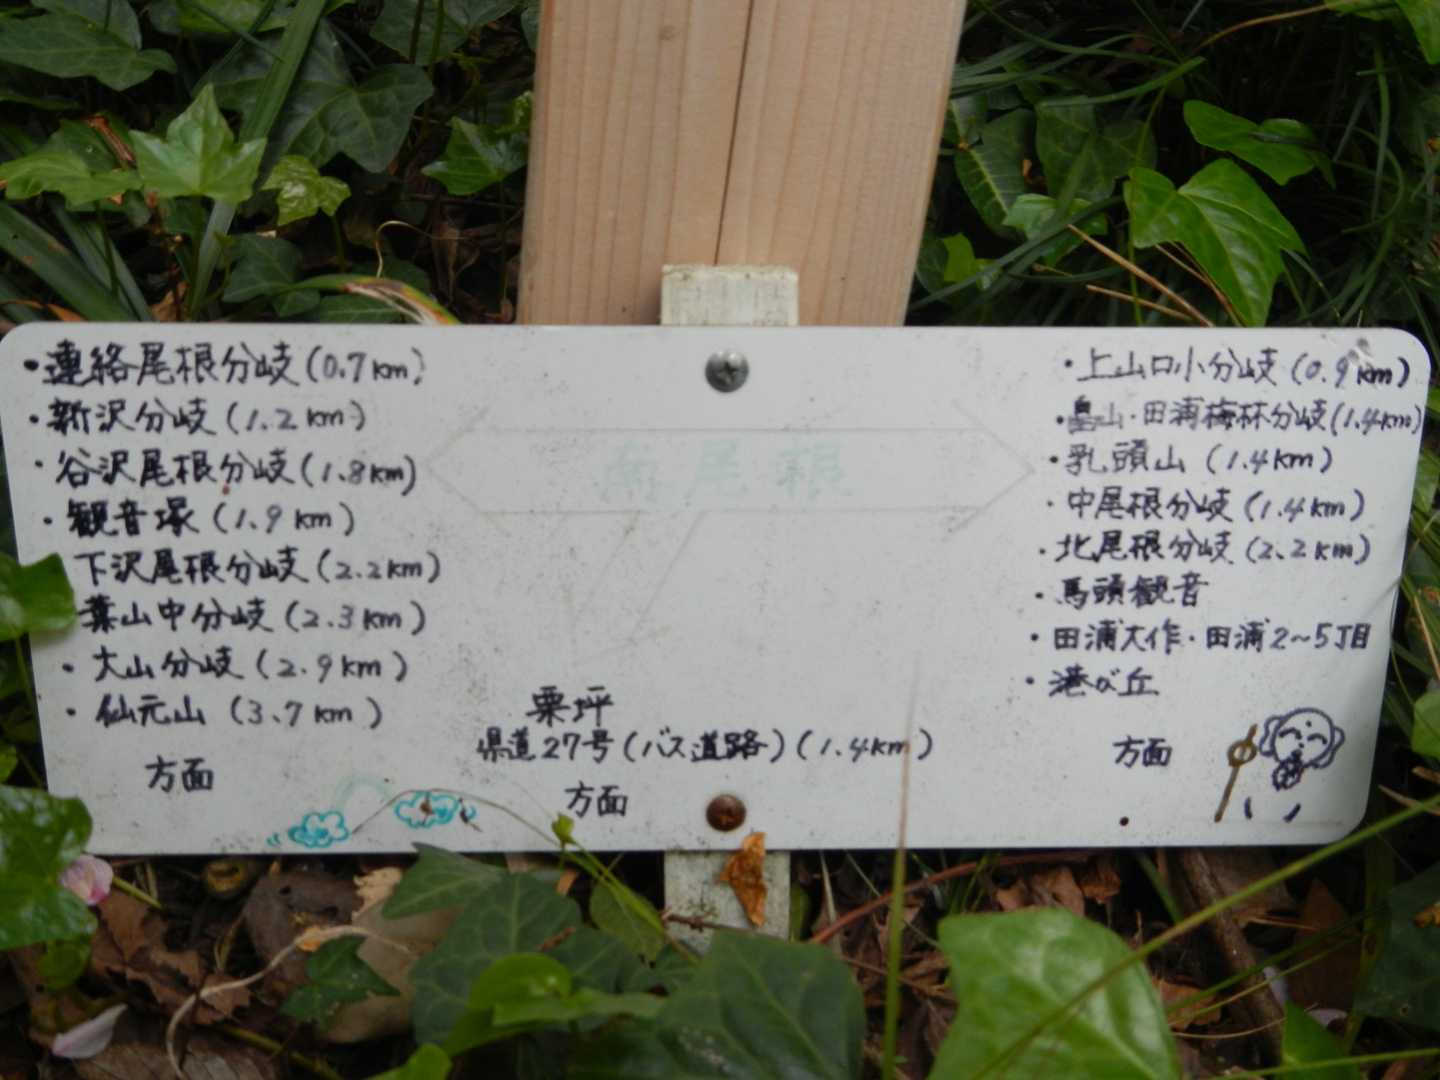 ・連絡尾根分岐(0.7km)
・新沢分岐(1.2km)
・谷沢尾根分岐(1.8km)
・観音塚(1.9km)
下沢尾根分岐(2.2km)
葉山中分岐(2.3km)
・大山分岐(2.9km)
・仙元山(3.7km)
方面
尾根
栗坪
県道27号(バス道路)(1.4km)
方面
・上山口小分岐(0.9km)
・畠山・田浦梅林分岐(1.4km)
・乳頭山(1.4km)
・中尾根分岐(1.4km)
・北尾根分岐(2.2km)
・馬頭観音
・田浦大作・田浦2~5丁目
・港が丘
方面